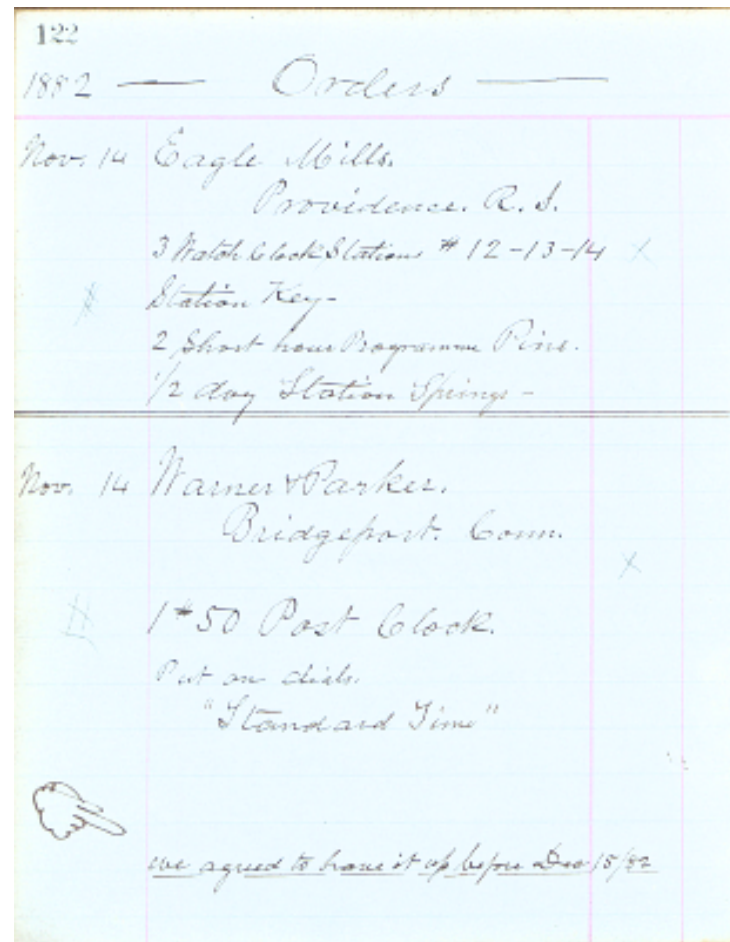 122
1882 — Orders —
Nov. 14 Eagle Mills.
Providence. R.I.
3 Watch Clock Stations # 12-13-14 X
Station Key-
2 Short hour Programme Pins.
1/2 doz Station Springs -
Nov. 14 Warner & Parker.
Bridgeport. Conn.
X
1 # 50 Post Clock.
Put on dials.
"Standard Time"
we agreed to have it up before Dec 15/82